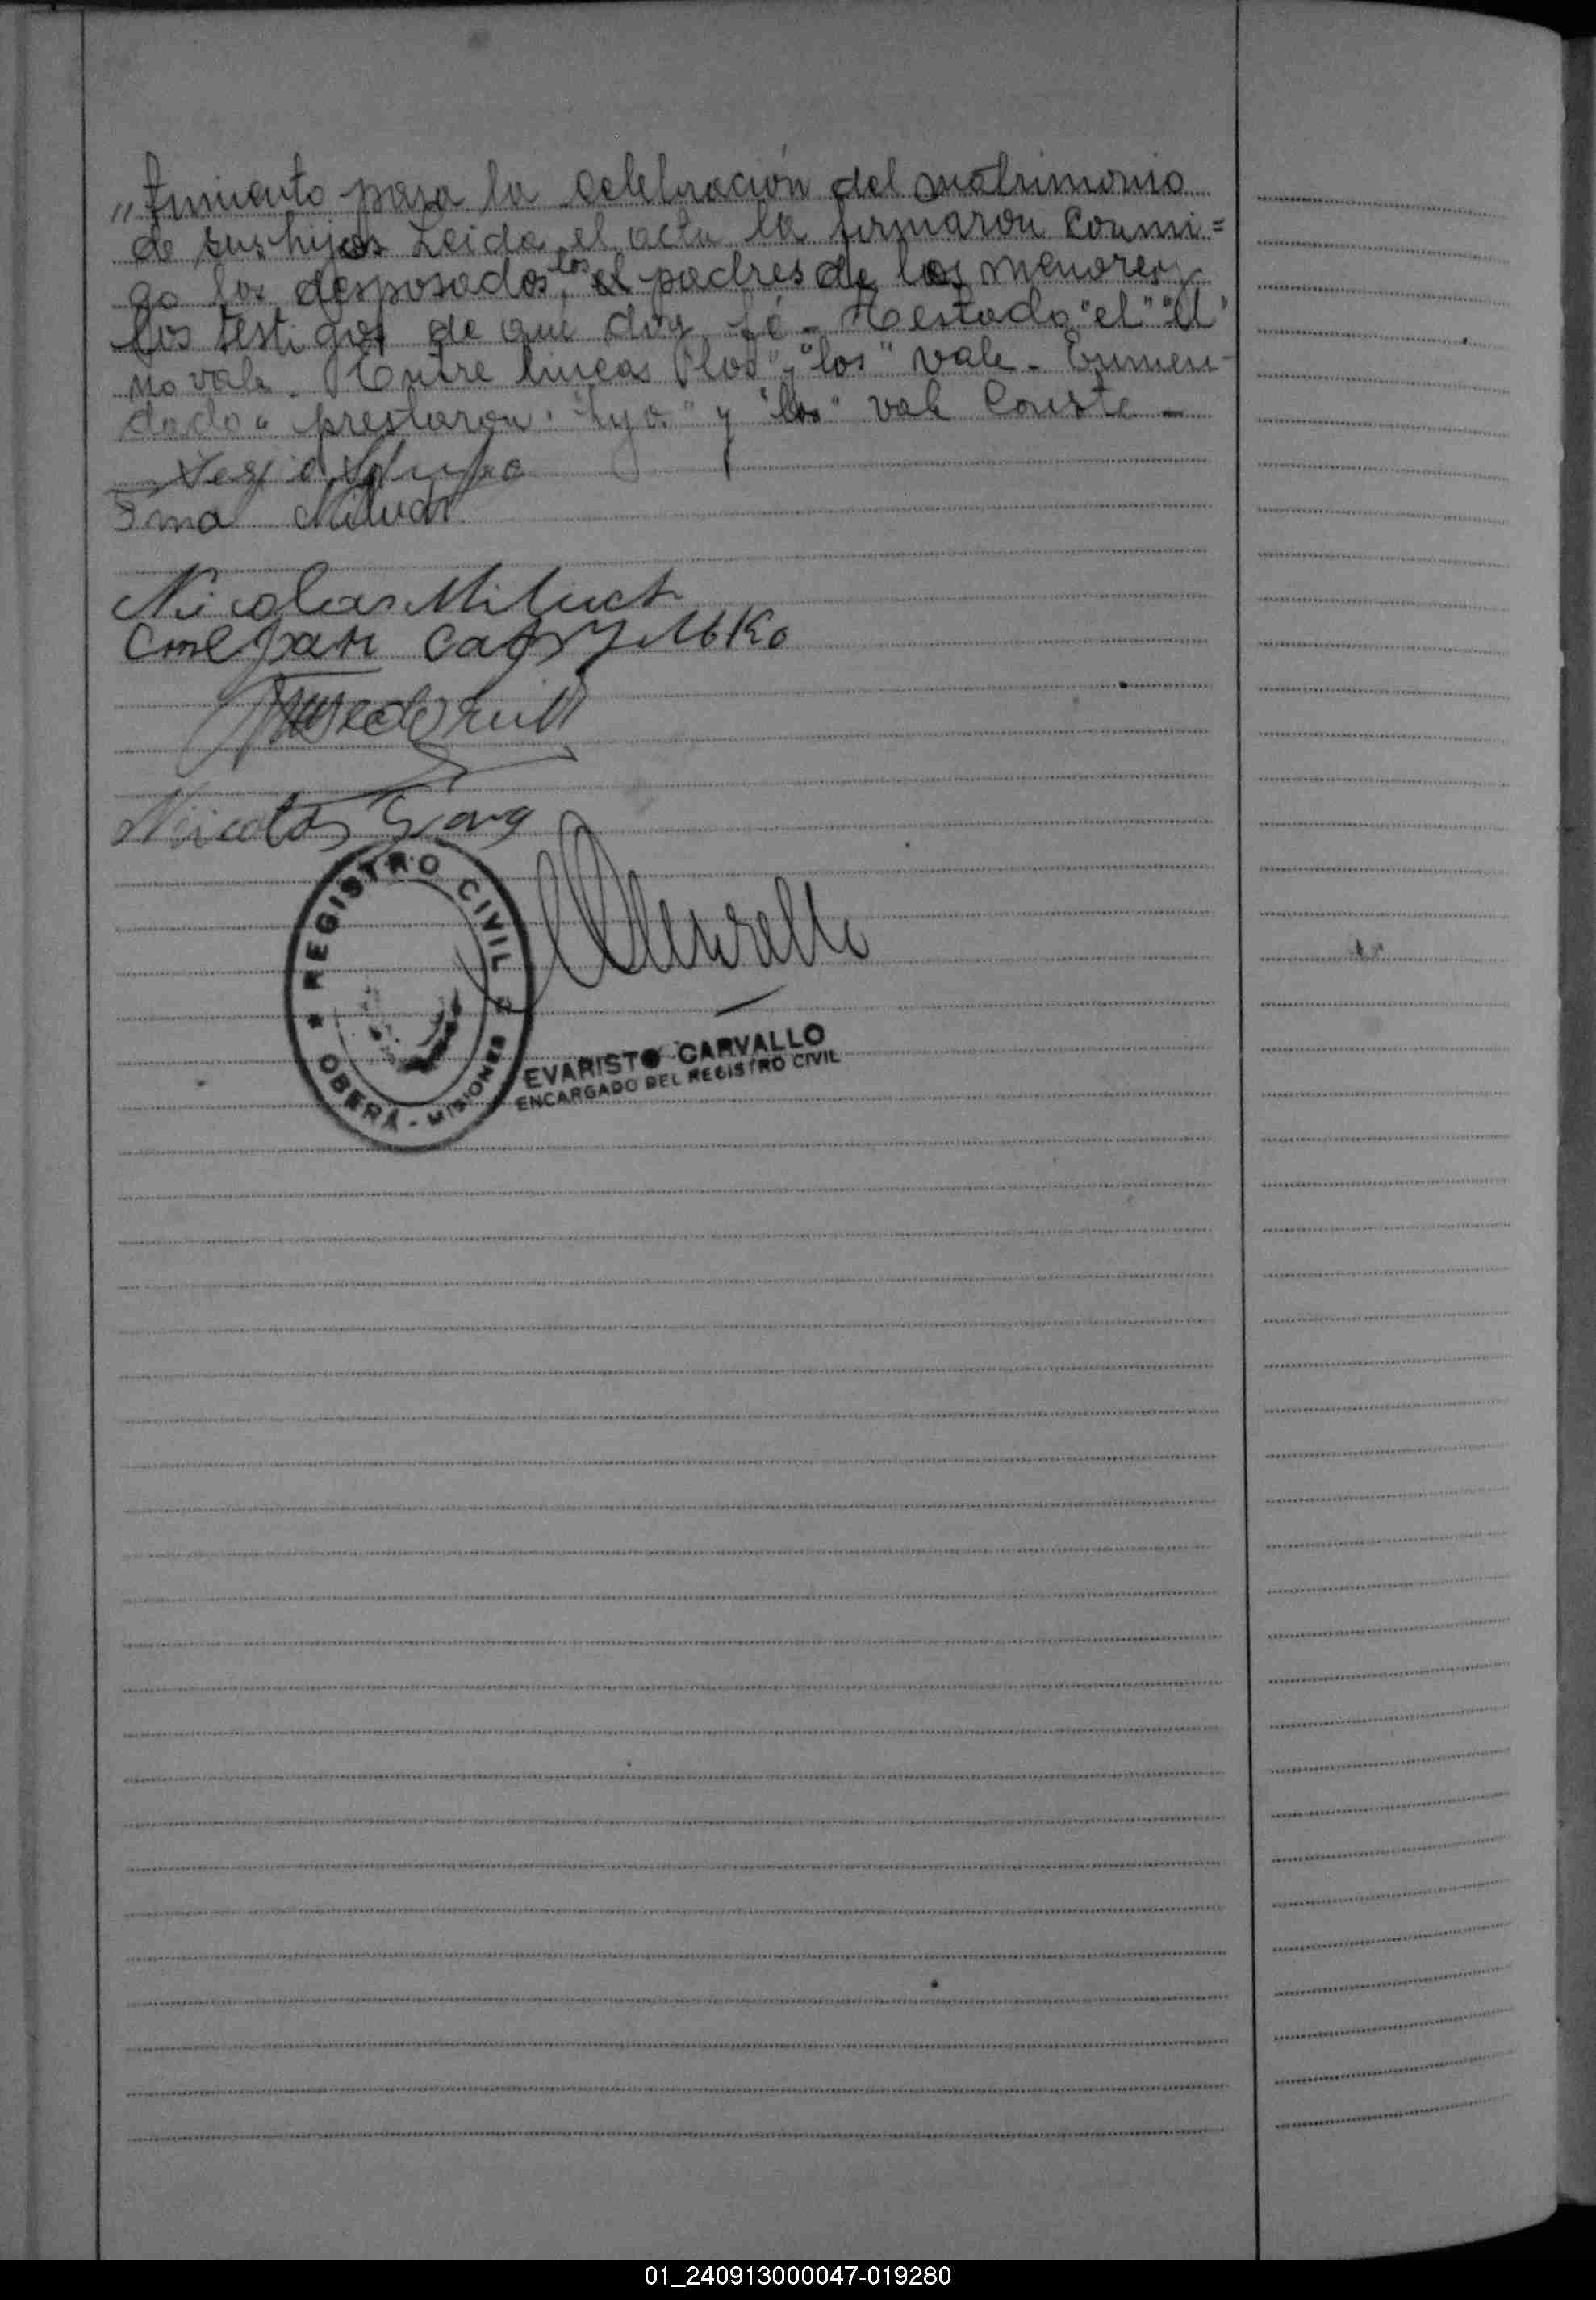 „timiento para la celebración del matrimonio
de sus hijos Leida el acta la firmaron conmi=
go los desposados, los el padres de los menores y
los testigos de que doy fé - Testado "el" "el"
no vale. Entre lineas "los" y "los" vale - Enmen-
dado " prestaron " hijos " y "los" vale Conste -
Ima Miluch
Nicolas Miluch
Степан Сагулько
Nicolas
REGISTRO CIVIL
OBERÁ - MISIONES
EVARISTO CARVALLO
ENCARGADO DEL REGISTRO CIVIL
01_240913000047-019280